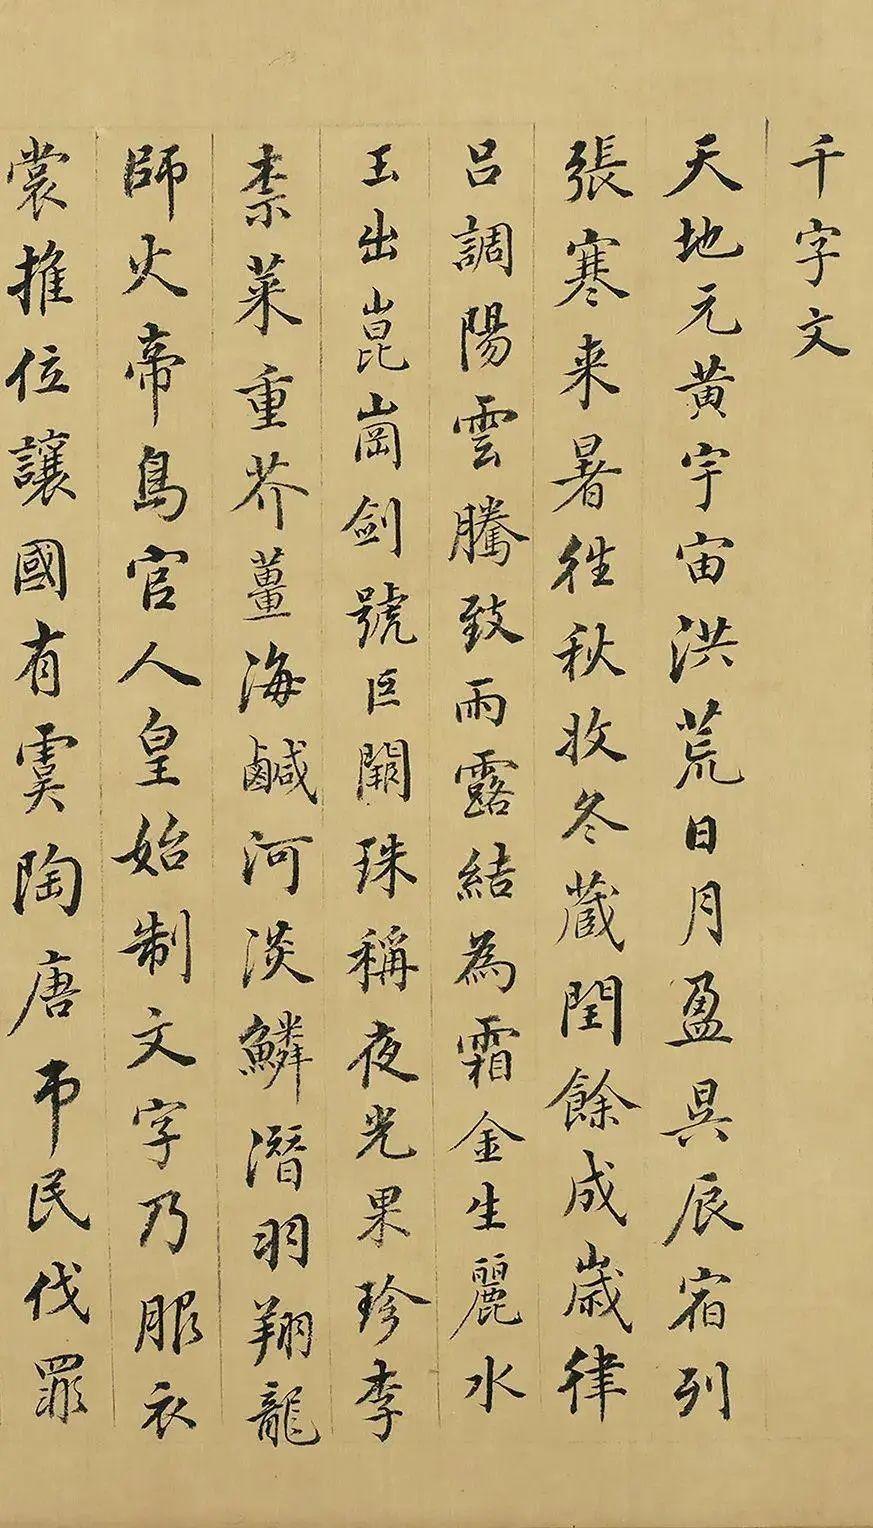 千字文
天地元黄宇宙洪荒日月盈昃辰宿列
張寒来暑往秋收冬蔵閏餘成歲律
呂調陽雲騰致雨露結為霜金生麗水
玉出崑崗劍號巨闕珠稱夜光果珍李
柰菜重芥薑海鹹河淡鱗潛羽翔龍
師火帝鳥官人皇始制文字乃服衣
裳推位讓國有虞陶唐弔民伐罪